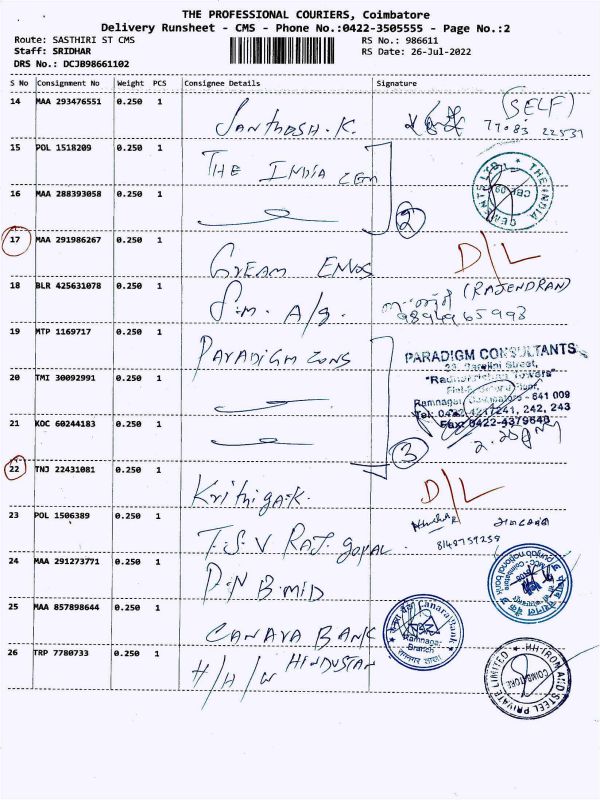 THE PROFESSIONAL COURIERS, Coimbatore
Delivery Runsheet - CMS - Phone No.:0422-3505555 - Page No.:2
Route: SASTHIRI ST CMS
RS No.: 986611
Staff: SRIDHAR
RS Date: 26-Jul-2022
DRS No.: DCJB98661102
S No Consignment No Weight PCS Consignee Details Signature
14 MAA 293476551 0.250 1
SANTHOSH.K. (SELF)
77083 22531
15 POL 1518209 0.250 1
THE INDIA CEM
16 MAA 288393058 0.250 1
2
THE INDIA CEMENTS LTD
CBE
17 MAA 291986267 0.250 1
CREAM D/L
18 BLR 425631078 0.250 1
S.M. A/g. (RAJENDRAN)
9894965998
19 MTP 1169717 0.250 1
PARADIGM CONS
PARADIGM CONSULTANTS
Street,
20 TMI 30092991 0.250 1
Towers"
Floor,
Ramnagar, Coimbatore - 641 009
Tel: 0422-4217241, 242, 243
21 KOC 60244183 0.250 1
Fax: 0422-4379640
3
22 TNJ 22431081 0.250 1
Krithiga.K. D/L
23 POL 1506389 0.250 1
T.S.V RAJ gopal
8148759259
24 MAA 291273771 0.250 1
P.N B.MID
punjab national bank
25 MAA 857898644 0.250 1
CANARA BANK
Canara Bank
Ramnagar
Branch
26 TRP 7780733 0.250 1
H/H/W HINDUSTAN
HH IRON AND STEEL PRIVATE LIMITED
COIMBATORE